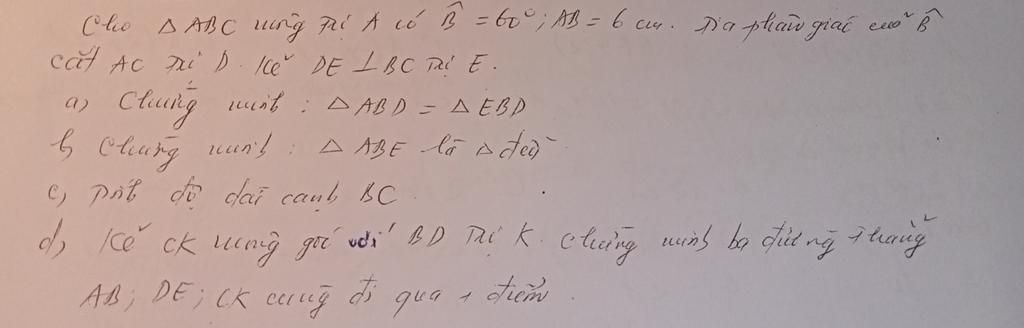 Cho △ABC vuông tại A có B̂ = 60°; AB = 6 cm. Tia phân giác của B̂
cắt AC tại D. Kẻ DE ⊥ BC tại E.
a) Chứng minh : △ABD = △EBD
b) Chứng minh : △ABE là △đều
c) Tính độ dài cạnh BC.
d) Kẻ CK vuông góc với BD tại K. Chứng minh ba đường thẳng
AB; DE; CK cùng đi qua 1 điểm.